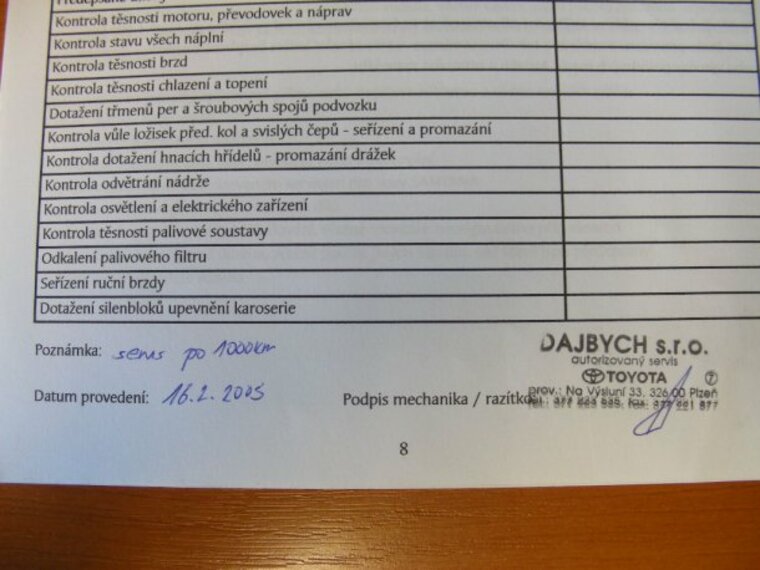 Kontrola těsnosti motoru, převodovek a náprav
Kontrola stavu všech náplní
Kontrola těsnosti brzd
Kontrola těsnosti chlazení a topení
Dotažení třmenů per a šroubových spojů podvozku
Kontrola vůle ložisek před. kol a svislých čepů - seřízení a promazání
Kontrola dotažení hnacích hřídelů - promazání drážek
Kontrola odvětrání nádrže
Kontrola osvětlení a elektrického zařízení
Kontrola těsnosti palivové soustavy
Odkalení palivového filtru
Seřízení ruční brzdy
Dotažení silenbloků upevnění karoserie
Poznámka: servis po 1000km
Datum provedení: 16.2. 2005
Podpis mechanika / razítko:
DAJBYCH s.r.o.
autorizovaný servis
TOYOTA 7
prov.: Na Výsluní 33, 326 00 Plzeň
8